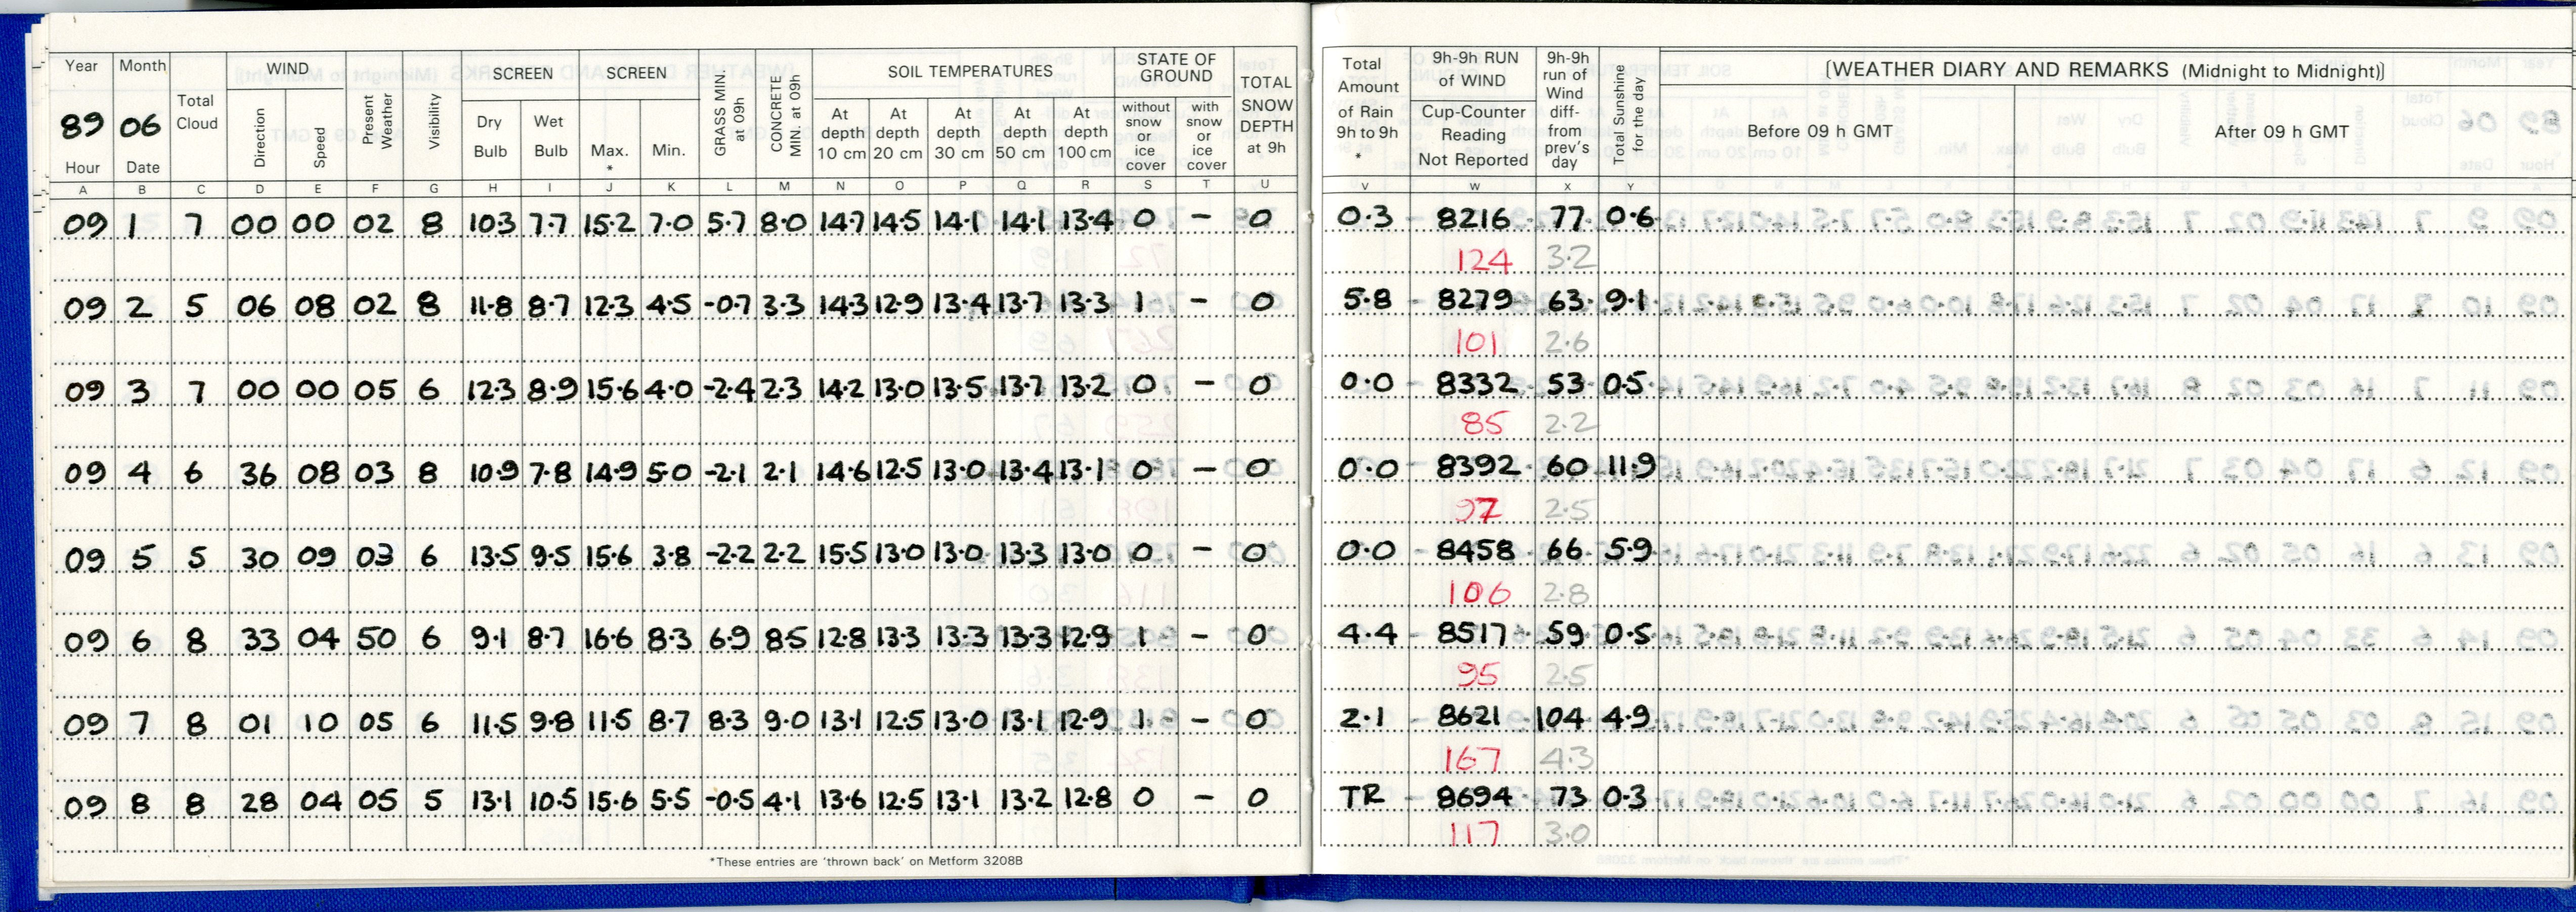 Year Month Total Cloud WIND Present Weather Visibility SCREEN SCREEN GRASS MIN. at 09h CONCRETE MIN. at 09h SOIL TEMPERATURES STATE OF GROUND TOTAL SNOW DEPTH at 9h Total Amount of Rain 9h to 9h * 9h-9h RUN of WIND 9h-9h run of Wind diff- from prev's day Total Sunshine for the day (WEATHER DIARY AND REMARKS (Midnight to Midnight))
89 06 Direction Speed Dry Bulb Wet Bulb Max. * Min. At depth 10 cm At depth 20 cm At depth 30 cm At depth 50 cm At depth 100 cm without snow or ice cover with snow or ice cover Cup-Counter Reading Not Reported Before 09 h GMT After 09 h GMT
Hour Date
A B C D E F G H I J K L M N O P Q R S T U V W X Y
09 1 7 00 00 02 8 10.3 7.7 15.2 7.0 5.7 8.0 14.7 14.5 14.1 14.1 13.4 0 - 0 0.3 8216 77 0.6
124 3.2
09 2 5 06 08 02 8 11.8 8.7 12.3 4.5 -0.7 3.3 14.3 12.9 13.4 13.7 13.3 1 - 0 5.8 8279 63 9.1
101 2.6
09 3 7 00 00 05 6 12.3 8.9 15.6 4.0 -2.4 2.3 14.2 13.0 13.5 13.7 13.2 0 - 0 0.0 8332 53 0.5
85 2.2
09 4 6 36 08 03 8 10.9 7.8 14.9 5.0 -2.1 2.1 14.6 12.5 13.0 13.4 13.1 0 - 0 0.0 8392 60 11.9
97 2.5
09 5 5 30 09 03 6 13.5 9.5 15.6 3.8 -2.2 2.2 15.5 13.0 13.0 13.3 13.0 0 - 0 0.0 8458 66 5.9
106 2.8
09 6 8 33 04 50 6 9.1 8.7 16.6 8.3 6.9 8.5 12.8 13.3 13.3 13.3 12.9 1 - 0 4.4 8517 59 0.5
95 2.5
09 7 8 01 10 05 6 11.5 9.8 11.5 8.7 8.3 9.0 13.1 12.5 13.0 13.1 12.9 1 - 0 2.1 8621 104 4.9
167 4.3
09 8 8 28 04 05 5 13.1 10.5 15.6 5.5 -0.5 4.1 13.6 12.5 13.1 13.2 12.8 0 - 0 TR 8694 73 0.3
117 3.0
*These entries are 'thrown back' on Metform 3208B